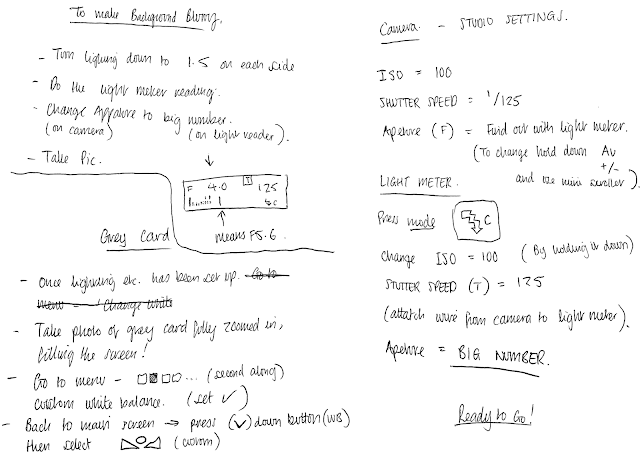 To make Background Blurry.
- Turn lighting down to 1.5 on each side
- Do the light meter reading.
- Change Apparture to big number.
(on camera) (on light reader).
- Take Pic.
F 4.0 T 125
1 5c
means F5.6.
Grey Card
- Once lighting etc. has been set up. Go to
menu - Change white
- Take photo of grey card fully zoomed in,
filling the screen!
- Go to menu - ... (second along)
custom white balance. (set ✓)
- Back to main screen → press (✓) down button (WB)
then select (custom)
Camera - STUDIO SETTINGS.
ISO = 100
SHUTTER SPEED = 1/125
Aperture (F) = Find out with light meter.
(To change hold down Av
+/-
and use mini scroller).
LIGHT METER.
Press mode C
Change ISO = 100 (By holding it down)
STUTTER SPEED (T) = 125
(attatch wire from camera to light meter).
Aperture = BIG NUMBER.
Ready to Go!